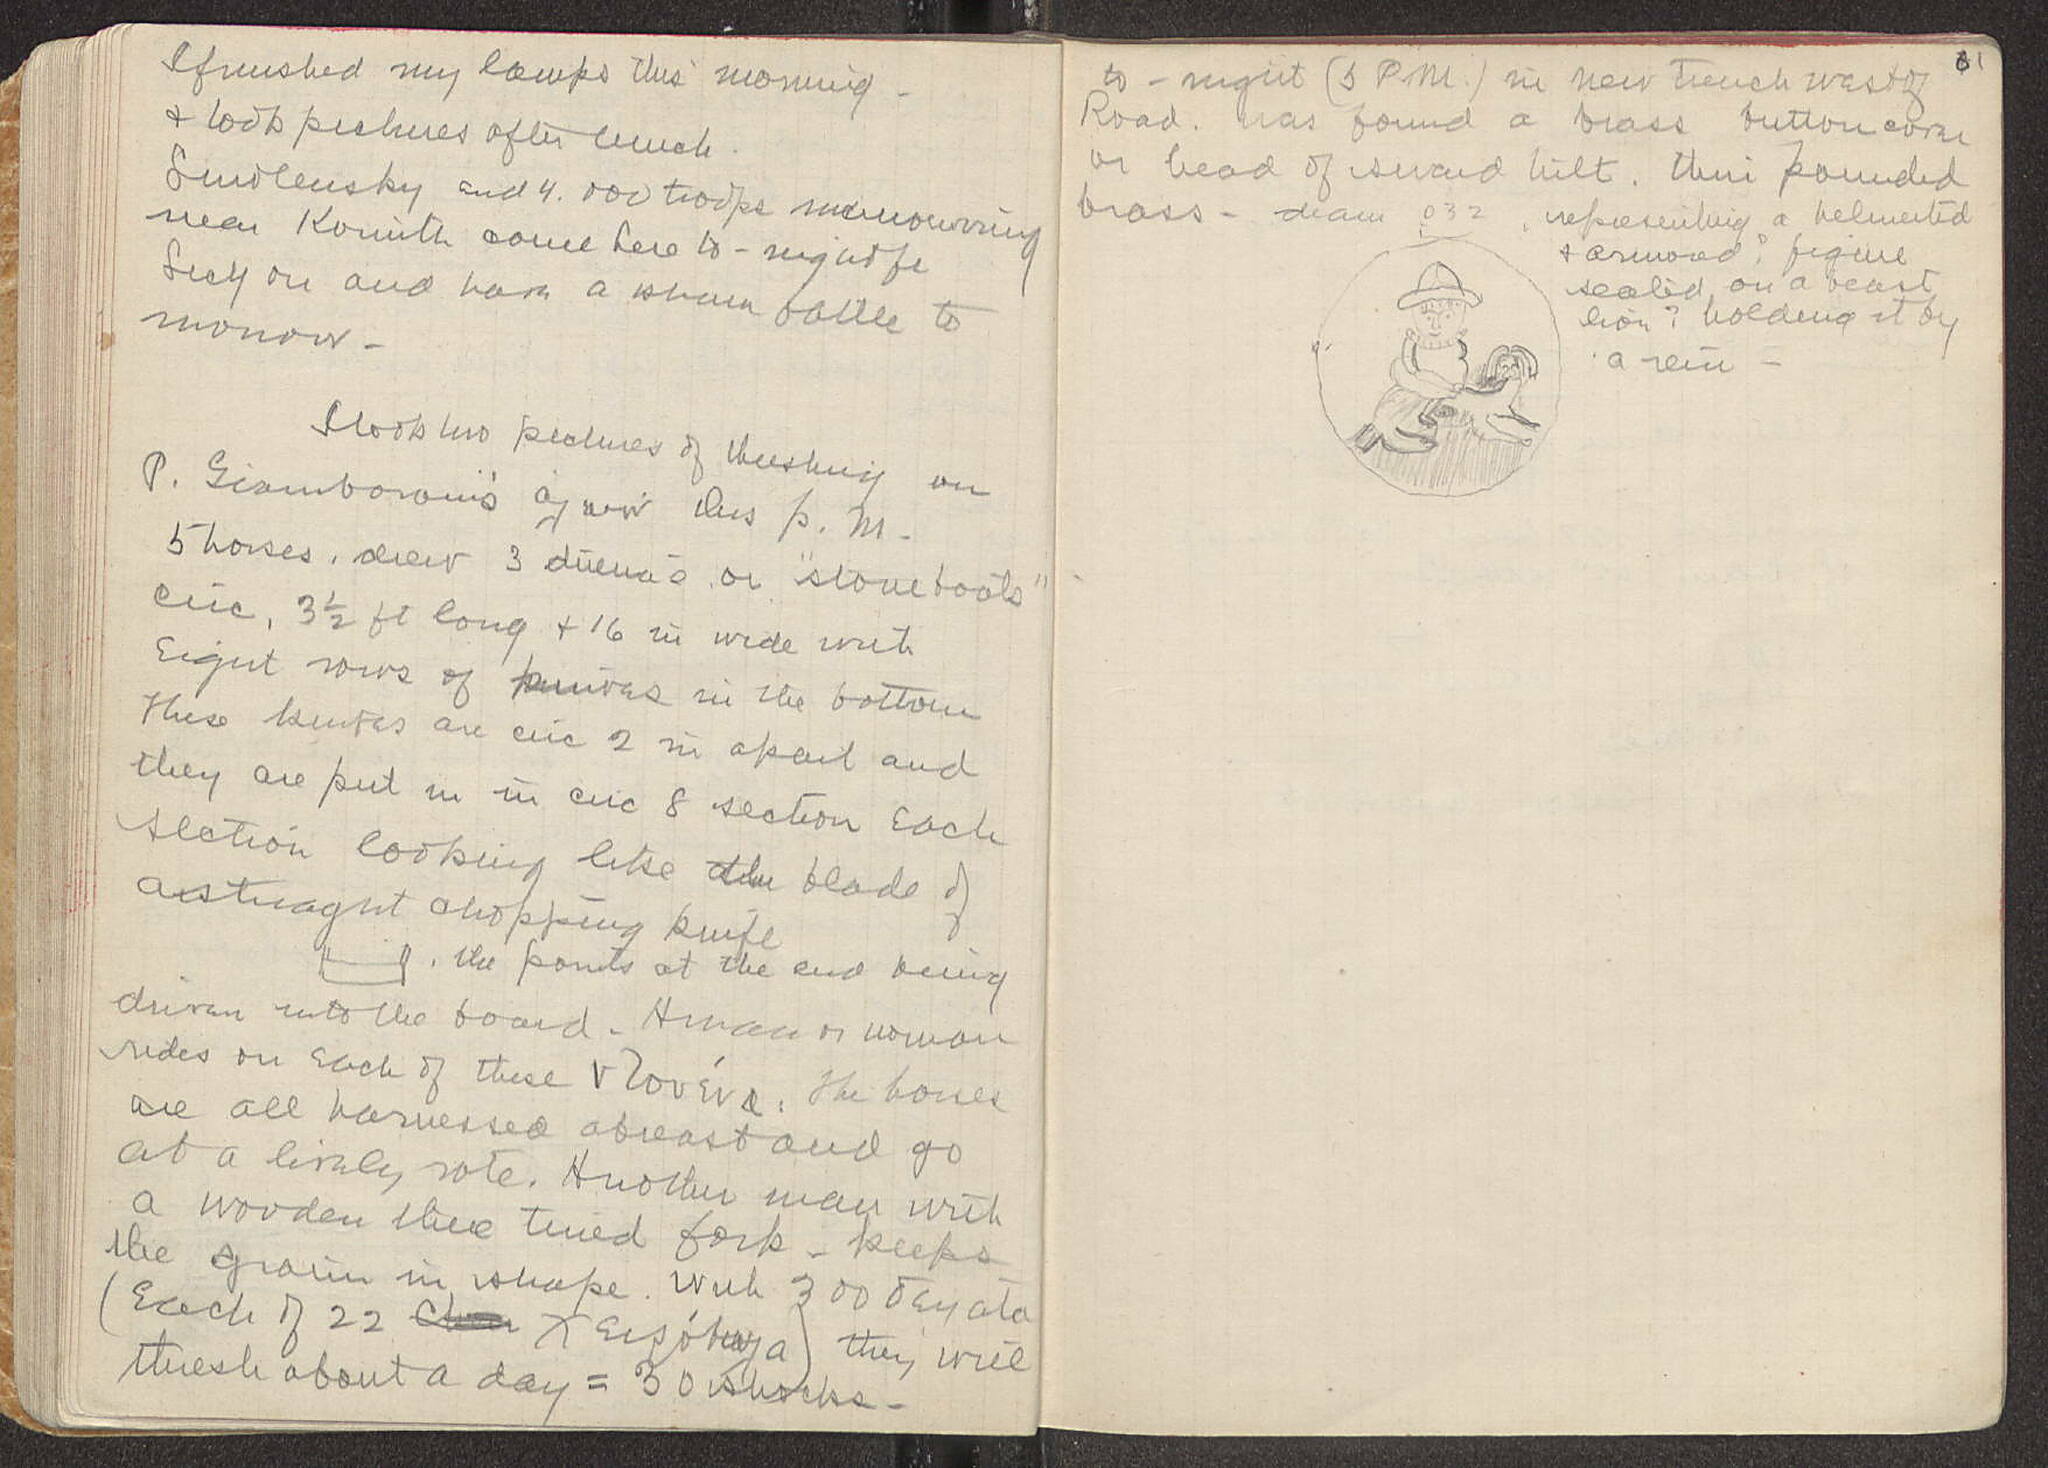 I finished my lamps this morning -
& took pictures after lunch.
Smolensky and 4.000 troops manouvring
near Korinth come here to-night fr
Sicyon and have a sham battle to
morrow -
I took two pictures of threshing on
P. Giambouranis this P.M.
5 horses. drew 3 or "stone boats"
circ. 3½ ft long & 16 in wide with
Eight rows of knives in the bottom
These knives are circ 2 in apart and
they are put in in circ 8 section Each
section looking like the blade of
a straight chopping knife
. the points at the end being
driven into the board - A man or woman
rides on Each of these . The horses
are all harnessed abreast and go
at a lively rate. Another man with
a wooden three tined fork - keeps
the grain in shape. With 300 δεμάτα
(Each of 22 χειρόβολα) they will
thresh about a day = 30 shocks -
61
to-night (5 P.M.) in new trench west of
Road. was found a brass button cover
or head of sword hilt. thin pounded
brass - diam 032. representing a helmeted
& armored? figure
seated on a beast
lion? holding it by
a rein -